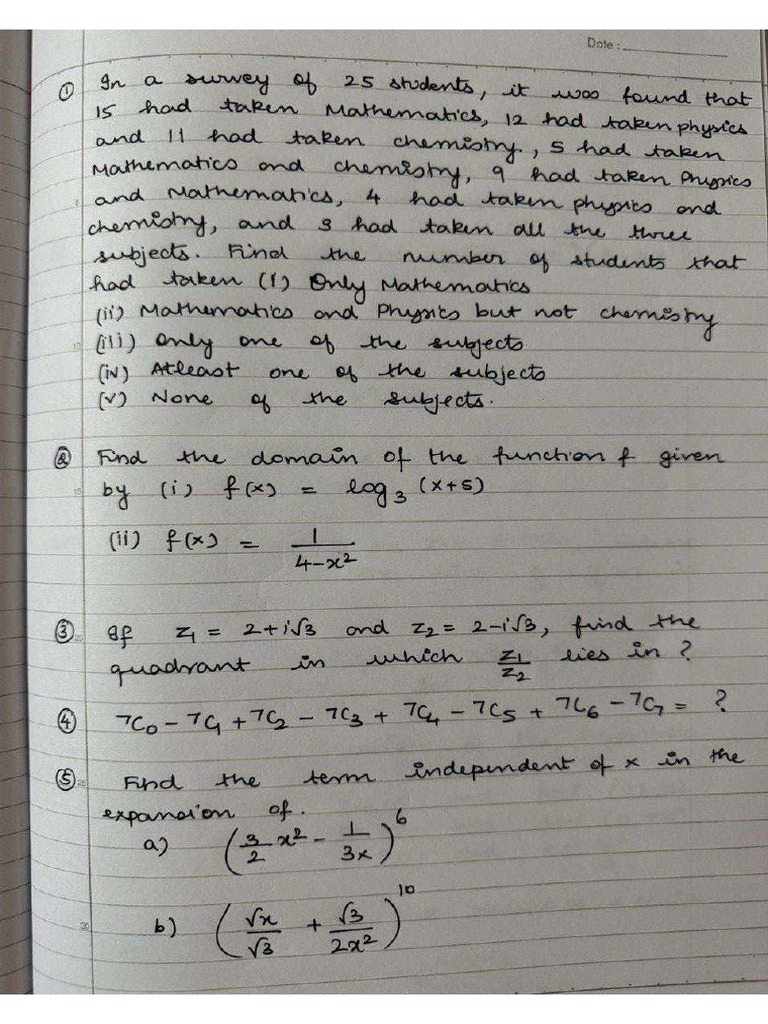 Date :
① In a survey of 25 students, it was found that
15 had taken Mathematics, 12 had taken physics
and 11 had taken chemistry, 5 had taken
Mathematics and chemistry, 9 had taken Physics
and Mathematics, 4 had taken physics and
chemistry, and 3 had taken all the three
subjects. Find the number of students that
had taken (i) Only Mathematics
(ii) Mathematics and Physics but not chemistry
(iii) Only one of the subjects
(iv) Atleast one of the subjects
(v) None of the subjects.
② Find the domain of the function f given
by (i) f(x) = log₃ (x+5)
(ii) f(x) = 1/(4-x²)
③ If z₁ = 2+i√3 and z₂ = 2-i√3, find the
quadrant in which z₁/z₂ lies in ?
④ 7C₀ - 7C₁ + 7C₂ - 7C₃ + 7C₄ - 7C₅ + 7C₆ - 7C₇ = ?
⑤ Find the term independent of x in the
expansion of.
a) (3/2 x² - 1/3x)⁶
b) (√x/√3 + √3/2x²)¹⁰